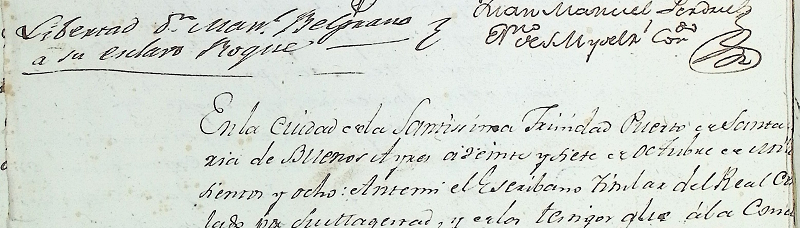 Libertad Dn. Man.l Belgrano
a su esclavo Roque
Juan Manuel Perdriel
Esno de S M y del Con
En la Ciudad de la Santissima Trinidad Puerto de Santa
ria de Buenos Ayres a veinte y siete de octubre de mil
sientos y ocho: Antemi el Escribano titular del Real
lado por su Magestad, y de los testigos que á la